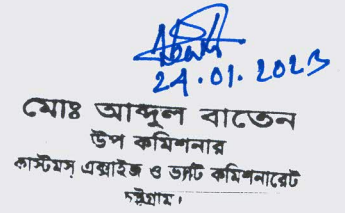 24.01.2023
মোঃ আব্দুল বাতেন
উপ কমিশনার
কাস্টমস্ এক্সাইজ ও ভ্যাট কমিশনারেট
চট্টগ্রাম।